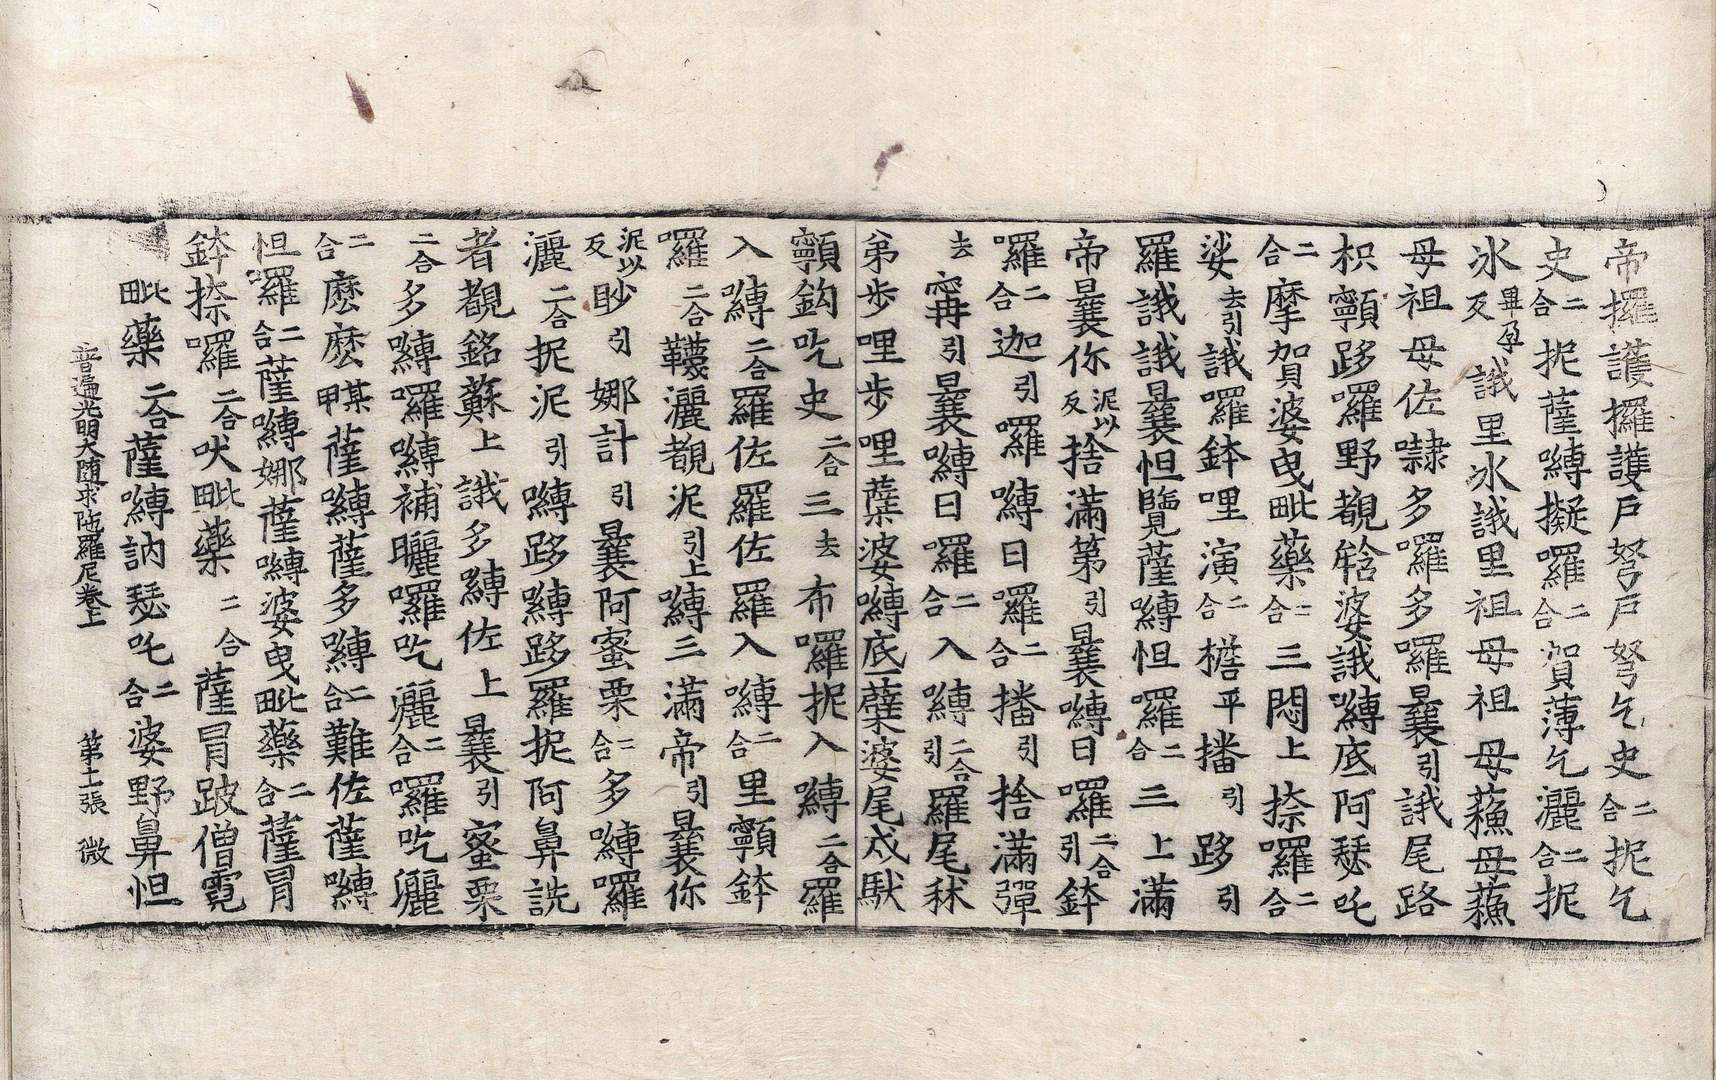 帝攞護攞護戶弩戶弩乞史二合抳乞
史二合抳薩嚩擬囉二合賀薄乞灑二合抳
冰畢孕反誐里冰誐里祖母祖母蘓母蘓
母祖母佐隷多囉多囉曩引誐尾路
枳顐跢囉野覩㿌婆誐嚩底阿瑟吒
二合摩賀婆曳毗藥二合三悶上捺囉二合
娑去引誐囉鉢哩演二合櫙平播引跢引
羅誐誐曩怛覽薩嚩怛囉二合三上滿
帝曩你泥以反捨滿第引曩嚩日囉二合引鉢
囉二合迦引囉嚩日囉二合播引捨滿彈
去寗引曩嚩日囉二合入嚩二合引羅尾秫
第步哩步哩蘖婆嚩底蘖婆尾戍馱
顐鈎吃史二合三去布囉抳入嚩二合羅
入嚩二合羅佐羅佐羅入嚩二合里顐鉢
囉二合韈灑覩泥引上嚩三滿帝引曩你
泥以反眇引娜計引曩阿蜜栗二合多嚩囉
灑二合抳泥引嚩跢嚩跢羅抳阿鼻詵
者覩銘蘇上誐多嚩佐上曩引蜜栗
二合多嚩囉嚩補曬囉吃灑二合囉吃灑
二合麼麼某甲薩嚩薩多嚩二合難佐薩嚩
怛囉二合薩嚩娜薩嚩婆曳毗藥二合薩冒
鉢捺囉二合吠毗藥二合薩冒跛僧霓
毗藥二合薩嚩訥瑟吒二合婆野鼻怛
普遍光明大隨求陁羅尼卷上 第十一張 微